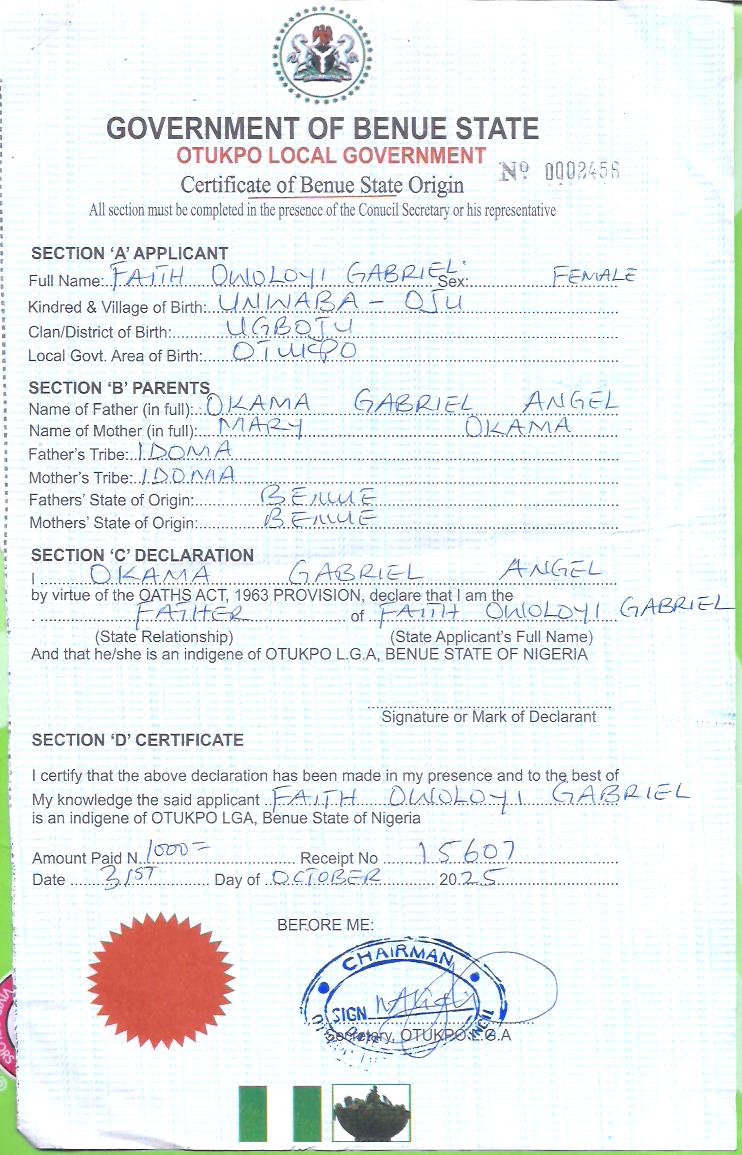 GOVERNMENT OF BENUE STATE
OTUKPO LOCAL GOVERNMENT
Nº 0002456
Certificate of Benue State Origin
All section must be completed in the presence of the Conucil Secretary or his representative
SECTION 'A' APPLICANT
Full Name: FAITH OWOLOYI GABRIEL. Sex: FEMALE
Kindred & Village of Birth: UNWABA - OJU
Clan/District of Birth: UGBOJU
Local Govt. Area of Birth: OTUKPO
SECTION 'B' PARENTS
Name of Father (in full): OKAMA GABRIEL ANGEL
Name of Mother (in full): MARY OKAMA
Father's Tribe: IDOMA
Mother's Tribe: IDOMA
Fathers' State of Origin: BENUE
Mothers' State of Origin: BENUE
SECTION 'C' DECLARATION
I OKAMA GABRIEL ANGEL
by virtue of the OATHS ACT, 1963 PROVISION, declare that I am the
FATHER of FAITH OWOLOYI GABRIEL
(State Relationship) (State Applicant's Full Name)
And that he/she is an indigene of OTUKPO L.G.A, BENUE STATE OF NIGERIA
Signature or Mark of Declarant
SECTION 'D' CERTIFICATE
I certify that the above declaration has been made in my presence and to the best of
My knowledge the said applicant FAITH OWOLOYI GABRIEL
is an indigene of OTUKPO LGA, Benue State of Nigeria
Amount Paid N 1000= Receipt No 15607
Date 31ST Day of OCTOBER 2025
BEFORE ME:
CHAIRMAN
SIGN
Secretary, OTUKPO L.G.A